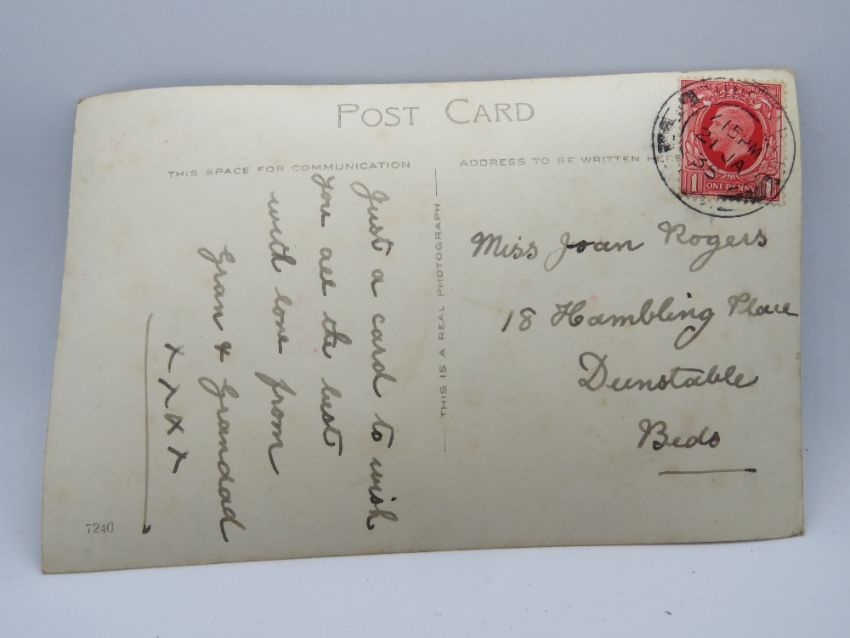 POST CARD
THIS SPACE FOR COMMUNICATION
ADDRESS TO BE WRITTEN HERE
THIS IS A REAL PHOTOGRAPH
Just a card to wish
you all the best
with love from
Gran & Grandad
x x x x
Miss Joan Rogers
18 Hambling Place
Dunstable
Beds
15 PM
21 JA
35
1 ONE PENNY 1
7240